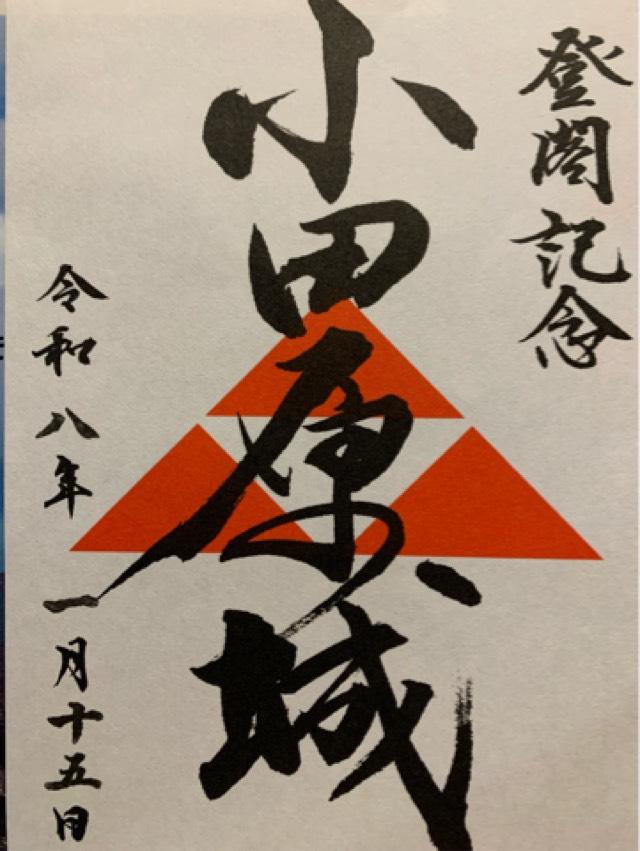 登閣記念
小田原城
令和八年一月十五日